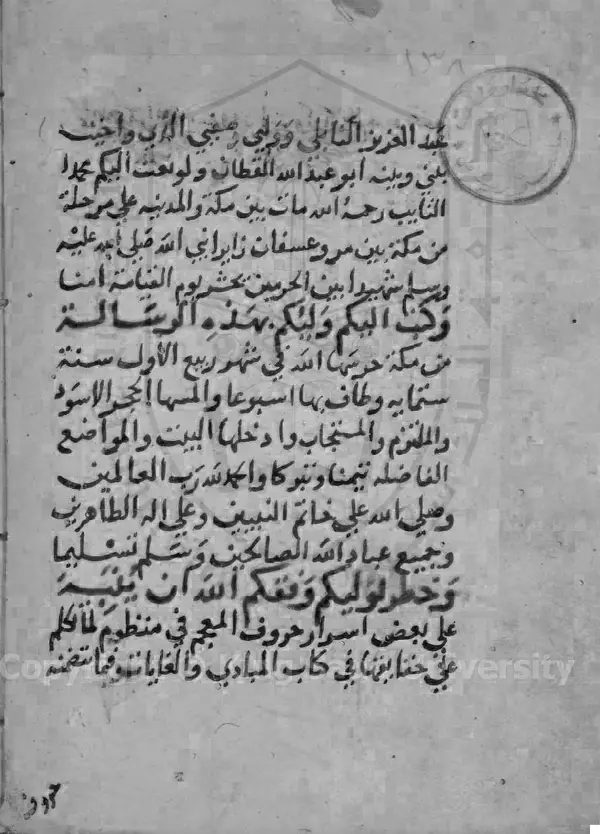 ١٣٨
عبد العزيز وولي وصفيي واخيت
بيني وبينه ابو عبد الله القطان ولو بعث اليكم محمدا
التايب رحمه الله مات بين مكة والمدينه علي مرحلة
من مكة بين مر وعسفان زايرا نبي الله صلي الله عليه
وسلم شهيدا بين الحرمين يحشر يوم القيامة امنا
وكتب اليكم وليكم بهذه الرسالة
من مكة حرسها الله في شهر ربيع الاول سنة
ستمايه وطاف بها اسبوعا والمسها الحجر الاسود
والملتزم والمستجاب وادخلها البيت والمواضع
الفاضله تيمنا وتبركا والحمد لله رب العالمين
وصلي الله علي خاتم النبيين وعلي اله الطاهرين
وجميع عباد الله الصالحين وسلم تسليما
وخطر لوليكم وفقكم الله ان ينبه
علي بعض اسرار حروف المعجم في منظوم لما تكلم
علي حقايقها في كتاب المبادي والغايات وفيما تتضمنه
Copyright © King Saud University
حروف